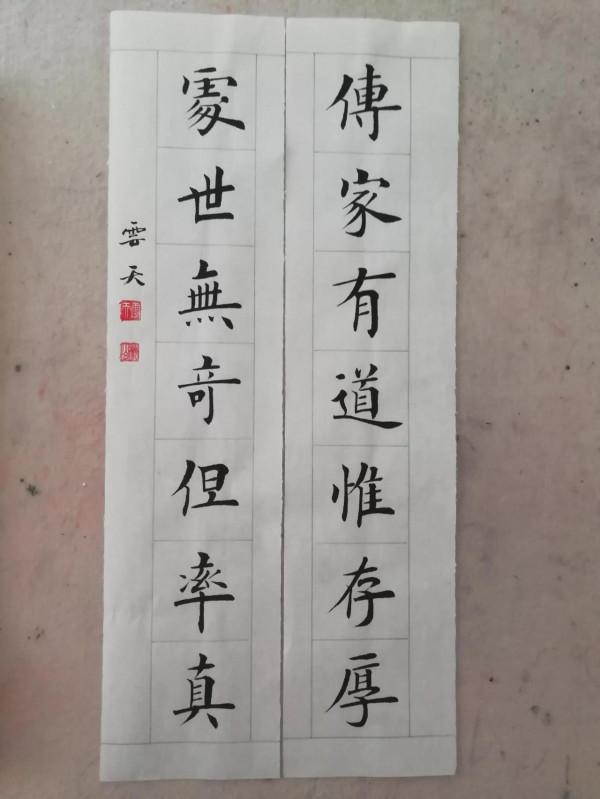 傳家有道惟存厚
處世無奇但率真
雲天